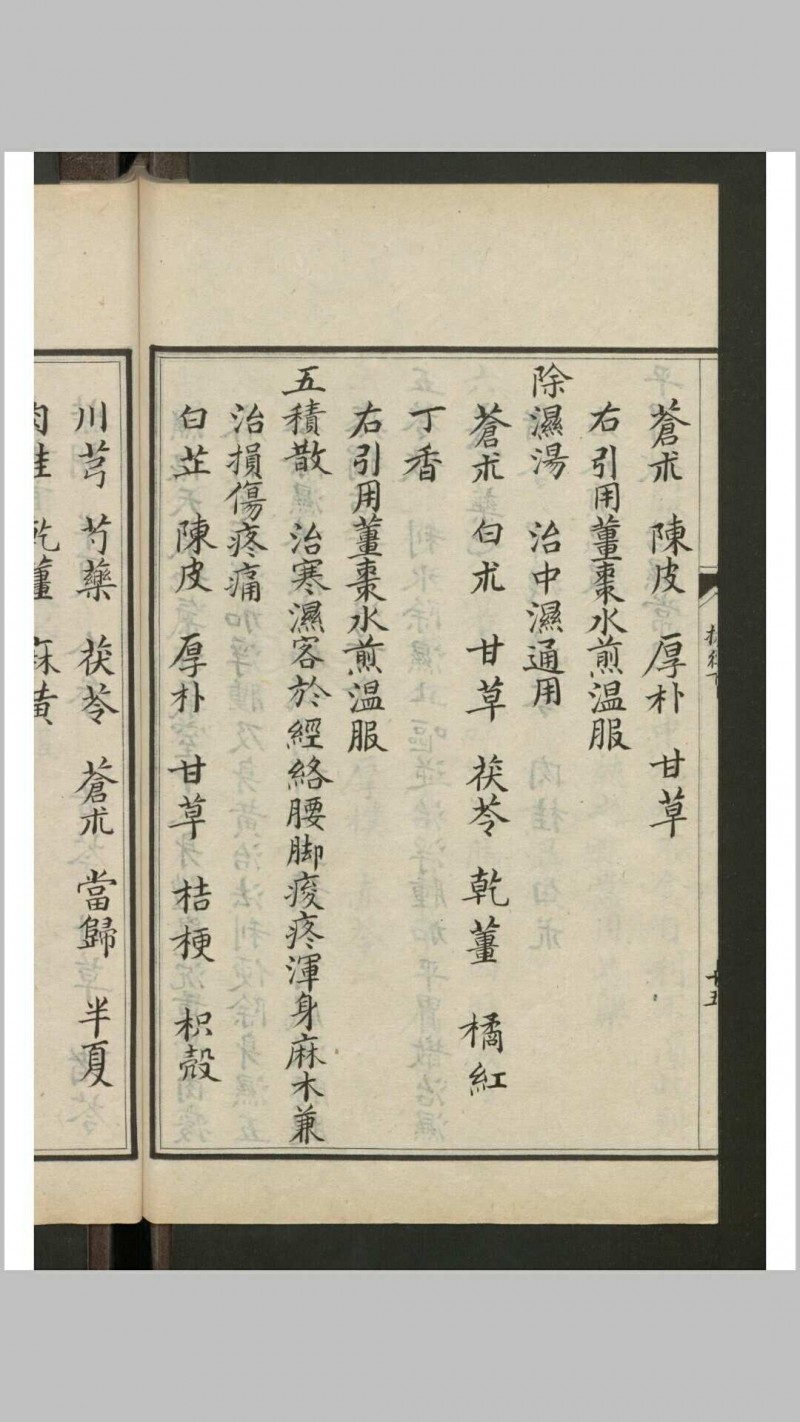 蒼朮 陳皮 厚朴 甘草
右引用薑棗水煎温服
除濕湯 治中濕通用
蒼朮 白朮 甘草 茯苓 乾薑 橘紅
丁香
右引用薑棗水煎温服
五積散 治寒濕客於經絡腰脚痠疼渾身麻木兼
治損傷疼痛
白芷 陳皮 厚朴 甘草 桔梗 枳殼
川芎 芍藥 茯苓 蒼朮 當歸 半夏
肉桂 乾薑 麻黄